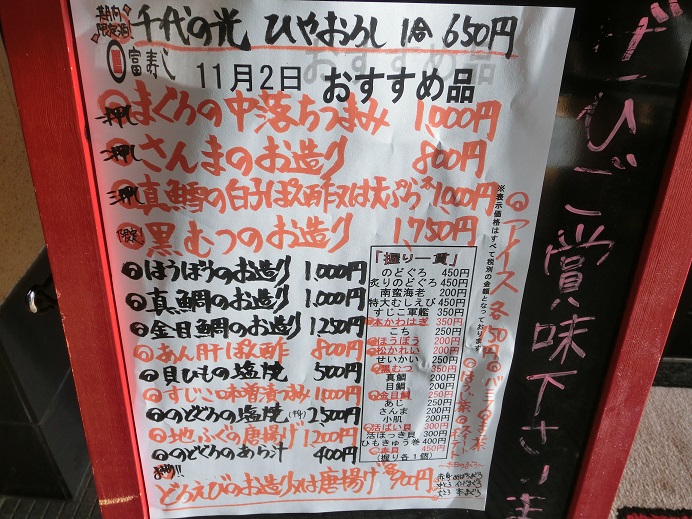 期間限定酒 千代の光 ひやおろし 1合 650円
富寿し 11月2日 おすすめ品
一押し まぐろの中落ちつまみ 1,000円
二押し さんまのお造り 800円
三押し 真鱈の白子ぽん酢又は天ぷら 1,000円
限定! 黒むつのお造り 1,750円
ほうぼうのお造り 1,000円
真鯛のお造り 1,000円
金目鯛のお造り 1,250円
あん肝ぽん酢 800円
貝ひもの塩焼 500円
すじこ味噌漬つまみ 1,000円
のどぐろの塩焼 2,500円
地ふぐの唐揚げ 1,200円
のどぐろのあら汁 400円
どろえびのお造り又は唐揚げ 各900円
「握り一貫」
のどぐろ 450円
炙りのどぐろ 450円
南蛮海老 200円
特大むしえび 450円
すじこ軍艦 350円
本かわはぎ 350円
こち 250円
ほうぼう 200円
松かれい 200円
せいかい 250円
黒むつ 350円
真鯛 200円
目鯛 200円
金目鯛 250円
あじ 250円
さんま 200円
小肌 200円
活ばい貝 200円
活ほっき貝 200円
ひもきゅう巻 400円
赤貝 450円
(握り各1個)
※表示価格はすべて税別の金額となっております
アイス 各150円
バニラ
ほうじ茶
ぜひご賞味下さいま